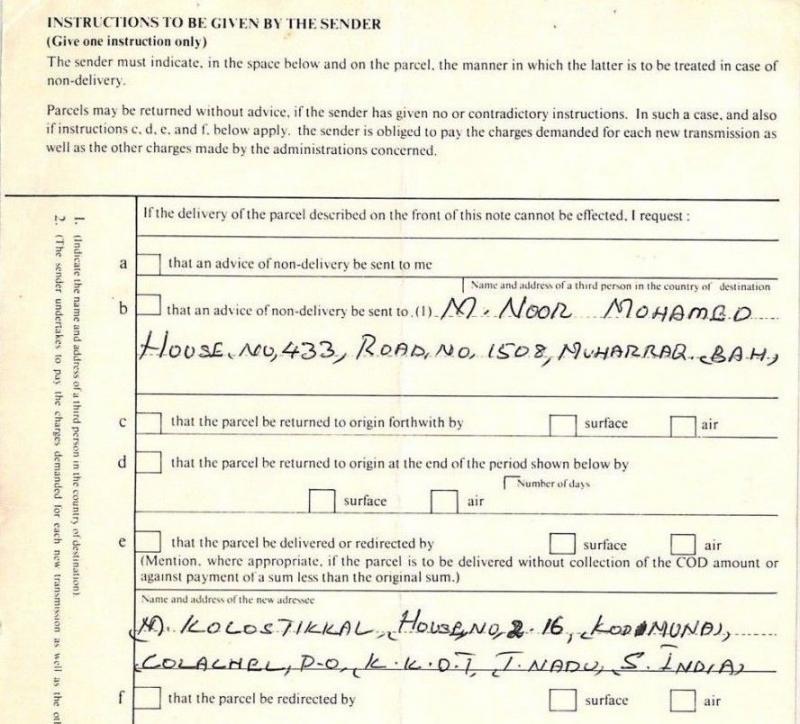 INSTRUCTIONS TO BE GIVEN BY THE SENDER
(Give one instruction only)
The sender must indicate, in the space below and on the parcel, the manner in which the latter is to be treated in case of
non-delivery.
Parcels may be returned without advice, if the sender has given no or contradictory instructions. In such a case, and also
if instructions c, d, e, and f, below apply. the sender is obliged to pay the charges demanded for each new transmission as
well as the other charges made by the administrations concerned.
1. (Indicate the name and address of a third person in the country of destination).
2. (The sender undertakes to pay the charges demanded for each new transmission as well as the
If the delivery of the parcel described on the front of this note cannot be effected, I request :
a that an advice of non-delivery be sent to me
Name and address of a third person in the country of destination
b that an advice of non-delivery be sent to (1) M. NOOR MOHAMED
HOUSE, NO, 433, ROAD, NO, 1508, MUHARRAR. BAH,
c that the parcel be returned to origin forthwith by surface air
d that the parcel be returned to origin at the end of the period shown below by
Number of days
surface air
e that the parcel be delivered or redirected by surface air
(Mention, where appropriate, if the parcel is to be delivered without collection of the COD amount or
against payment of a sum less than the original sum.)
Name and address of the new adressee
M. KOLOSTIKKAL, HOUSE, NO, 2-16,
COLACHEL, P-O, K. K. D. T, T. NADU, S. INDIA
f that the parcel be redirected by surface air